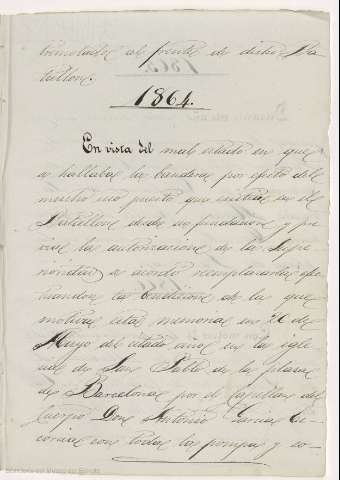 tremolados al frente de dicho Ba-
tallon.
1864.
En vista del mal estado en que
se hallaba la bandera por efecto del
mucho uso puesto que existia en el
Batallon desde su fundacion y pre-
vias las autorizaciones de la Supe-
rioridad se acordó reemplazarla efec-
tuandose la bendicion de la que
motiva esta memoria en 26 de
Mayo del citado año en la igle-
sia de San Pablo de la plaza
de Barcelona por el Capellan del
Cuerpo Don Antonio Garcia
con todas las pompas y